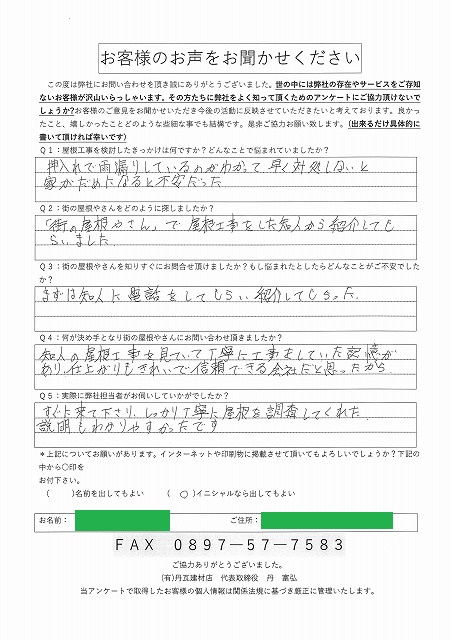 お客様のお声をお聞かせください
この度は弊社にお問い合わせを頂き誠にありがとうございました。世の中には弊社の存在やサービスをご存知
ないお客様が沢山いらっしゃいます。その方たちに弊社をよく知って頂くためのアンケートにご協力頂けないで
しょうか?お客様のご意見をお聞かせいただき今後の活動に反映させていただきたいと考えております。良かっ
たこと、嬉しかったことどのような些細な事でも結構です。是非ご協力お願い致します。(出来るだけ具体的に
書いて頂ければ幸いです)
Q1:屋根工事を検討したきっかけは何ですか?どんなことで悩まれていましたか?
押入れで雨漏りしているのがわかって早く対処しないと
家がだめになると不安だった
Q2:街の屋根やさんをどのように探しましたか?
「街の屋根やさん」で屋根工事をした知人から紹介しても
らいました。
Q3:街の屋根やさんを知りすぐにお問合せ頂けましたか?もし悩まれたとしたらどんなことがご不安でした
か?
まずは知人に電話をしてもらい紹介してもらった。
Q4:何が決め手となり街の屋根やさんにお問い合わせ頂きましたか?
知人の屋根工事を見ていて丁寧に工事をしていた記憶が
あり、仕上がりもきれいで信頼できる会社だと思ったから
Q5:実際に弊社担当者がお伺いしていかがでしたか?
すぐに来て下さり、しっかり丁寧に屋根を調査してくれた。
説明もわかりやすかったです
*上記についてお願いがあります。インターネットや印刷物に掲載させて頂いてもよろしいでしょうか?下記の
中から〇印を
お付下さい。
( )名前を出してもよい (○)イニシャルなら出してもよい
お名前: ご住所:
FAX 0897-57-7583
ご協力ありがとうございました。
(有)丹瓦建材店 代表取締役 丹 富弘
当アンケートで取得したお客様の個人情報は関係法規に基づき厳正に管理いたします。